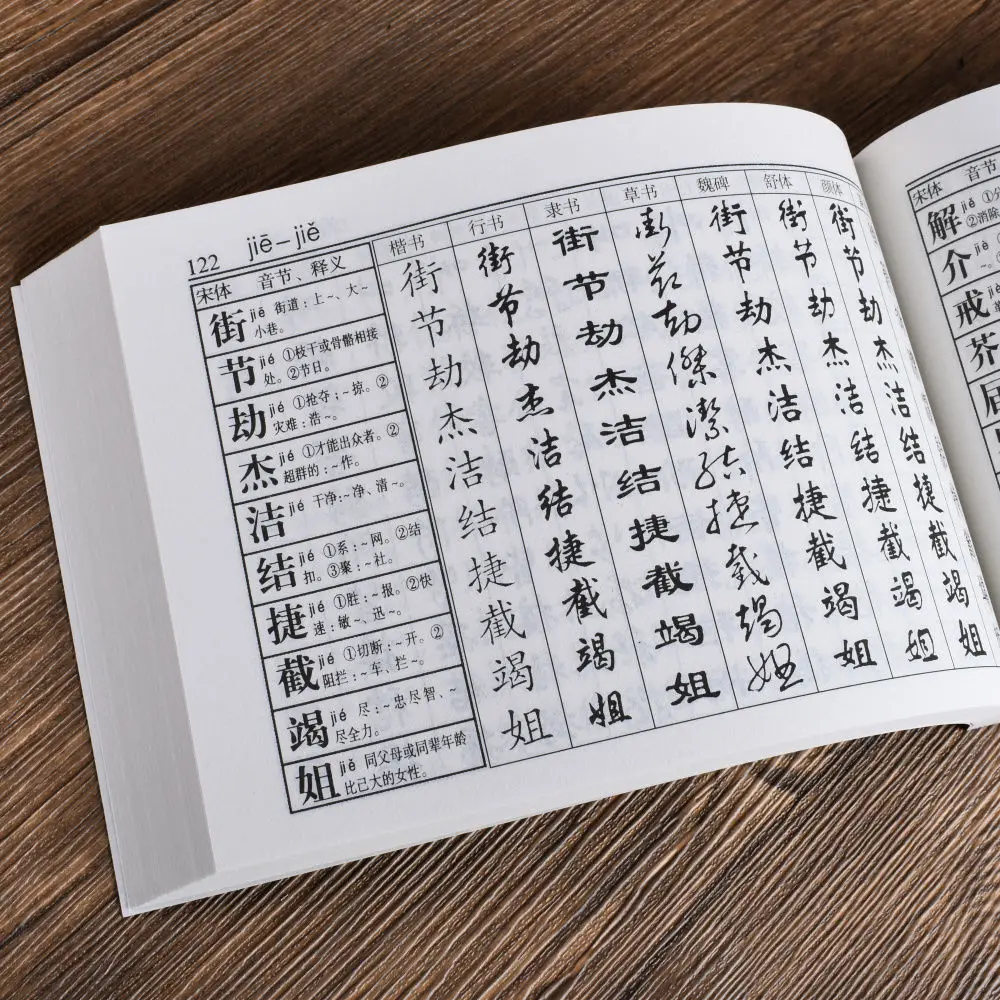 122 jiē–jiě
宋体 音节、释义 楷书 行书 隶书 草书 魏碑 舒体 颜体
街 jiē 街道：上～、大～ 街 街 街 街 街 街 街
小巷。
节 jié ①枝干或骨骼相接 节 节 节 节 节 节 节
处。②节日。
劫 jié ①抢夺：～掠。② 劫 劫 劫 劫 劫 劫 劫
灾难：浩～。
杰 jié ①才能出众者。② 杰 杰 杰 傑 杰 杰 杰
超群的：～作。
洁 jié 干净：～净、清～。 洁 洁 洁 潔 洁 洁 洁
结 jié ①系：～网。②结 结 结 结 结 结 结 结
扣。③聚：～社。
捷 jié ①胜：～报。②快 捷 捷 捷 捷 捷 捷 捷
速：敏～、迅～。
截 jié ①切断：～开。② 截 截 截 截 截 截 截
阻拦：～车、拦～。
竭 jié 尽：～忠尽智、～ 竭 竭 竭 竭 竭 竭 竭
尽全力。
姐 jiě 同父母或同辈年龄 姐 姐 姐 姐 姐 姐 姐
比己大的女性。
宋体 音节
解 jiě
②消除
介 jiè
戒 jiè
芥
届